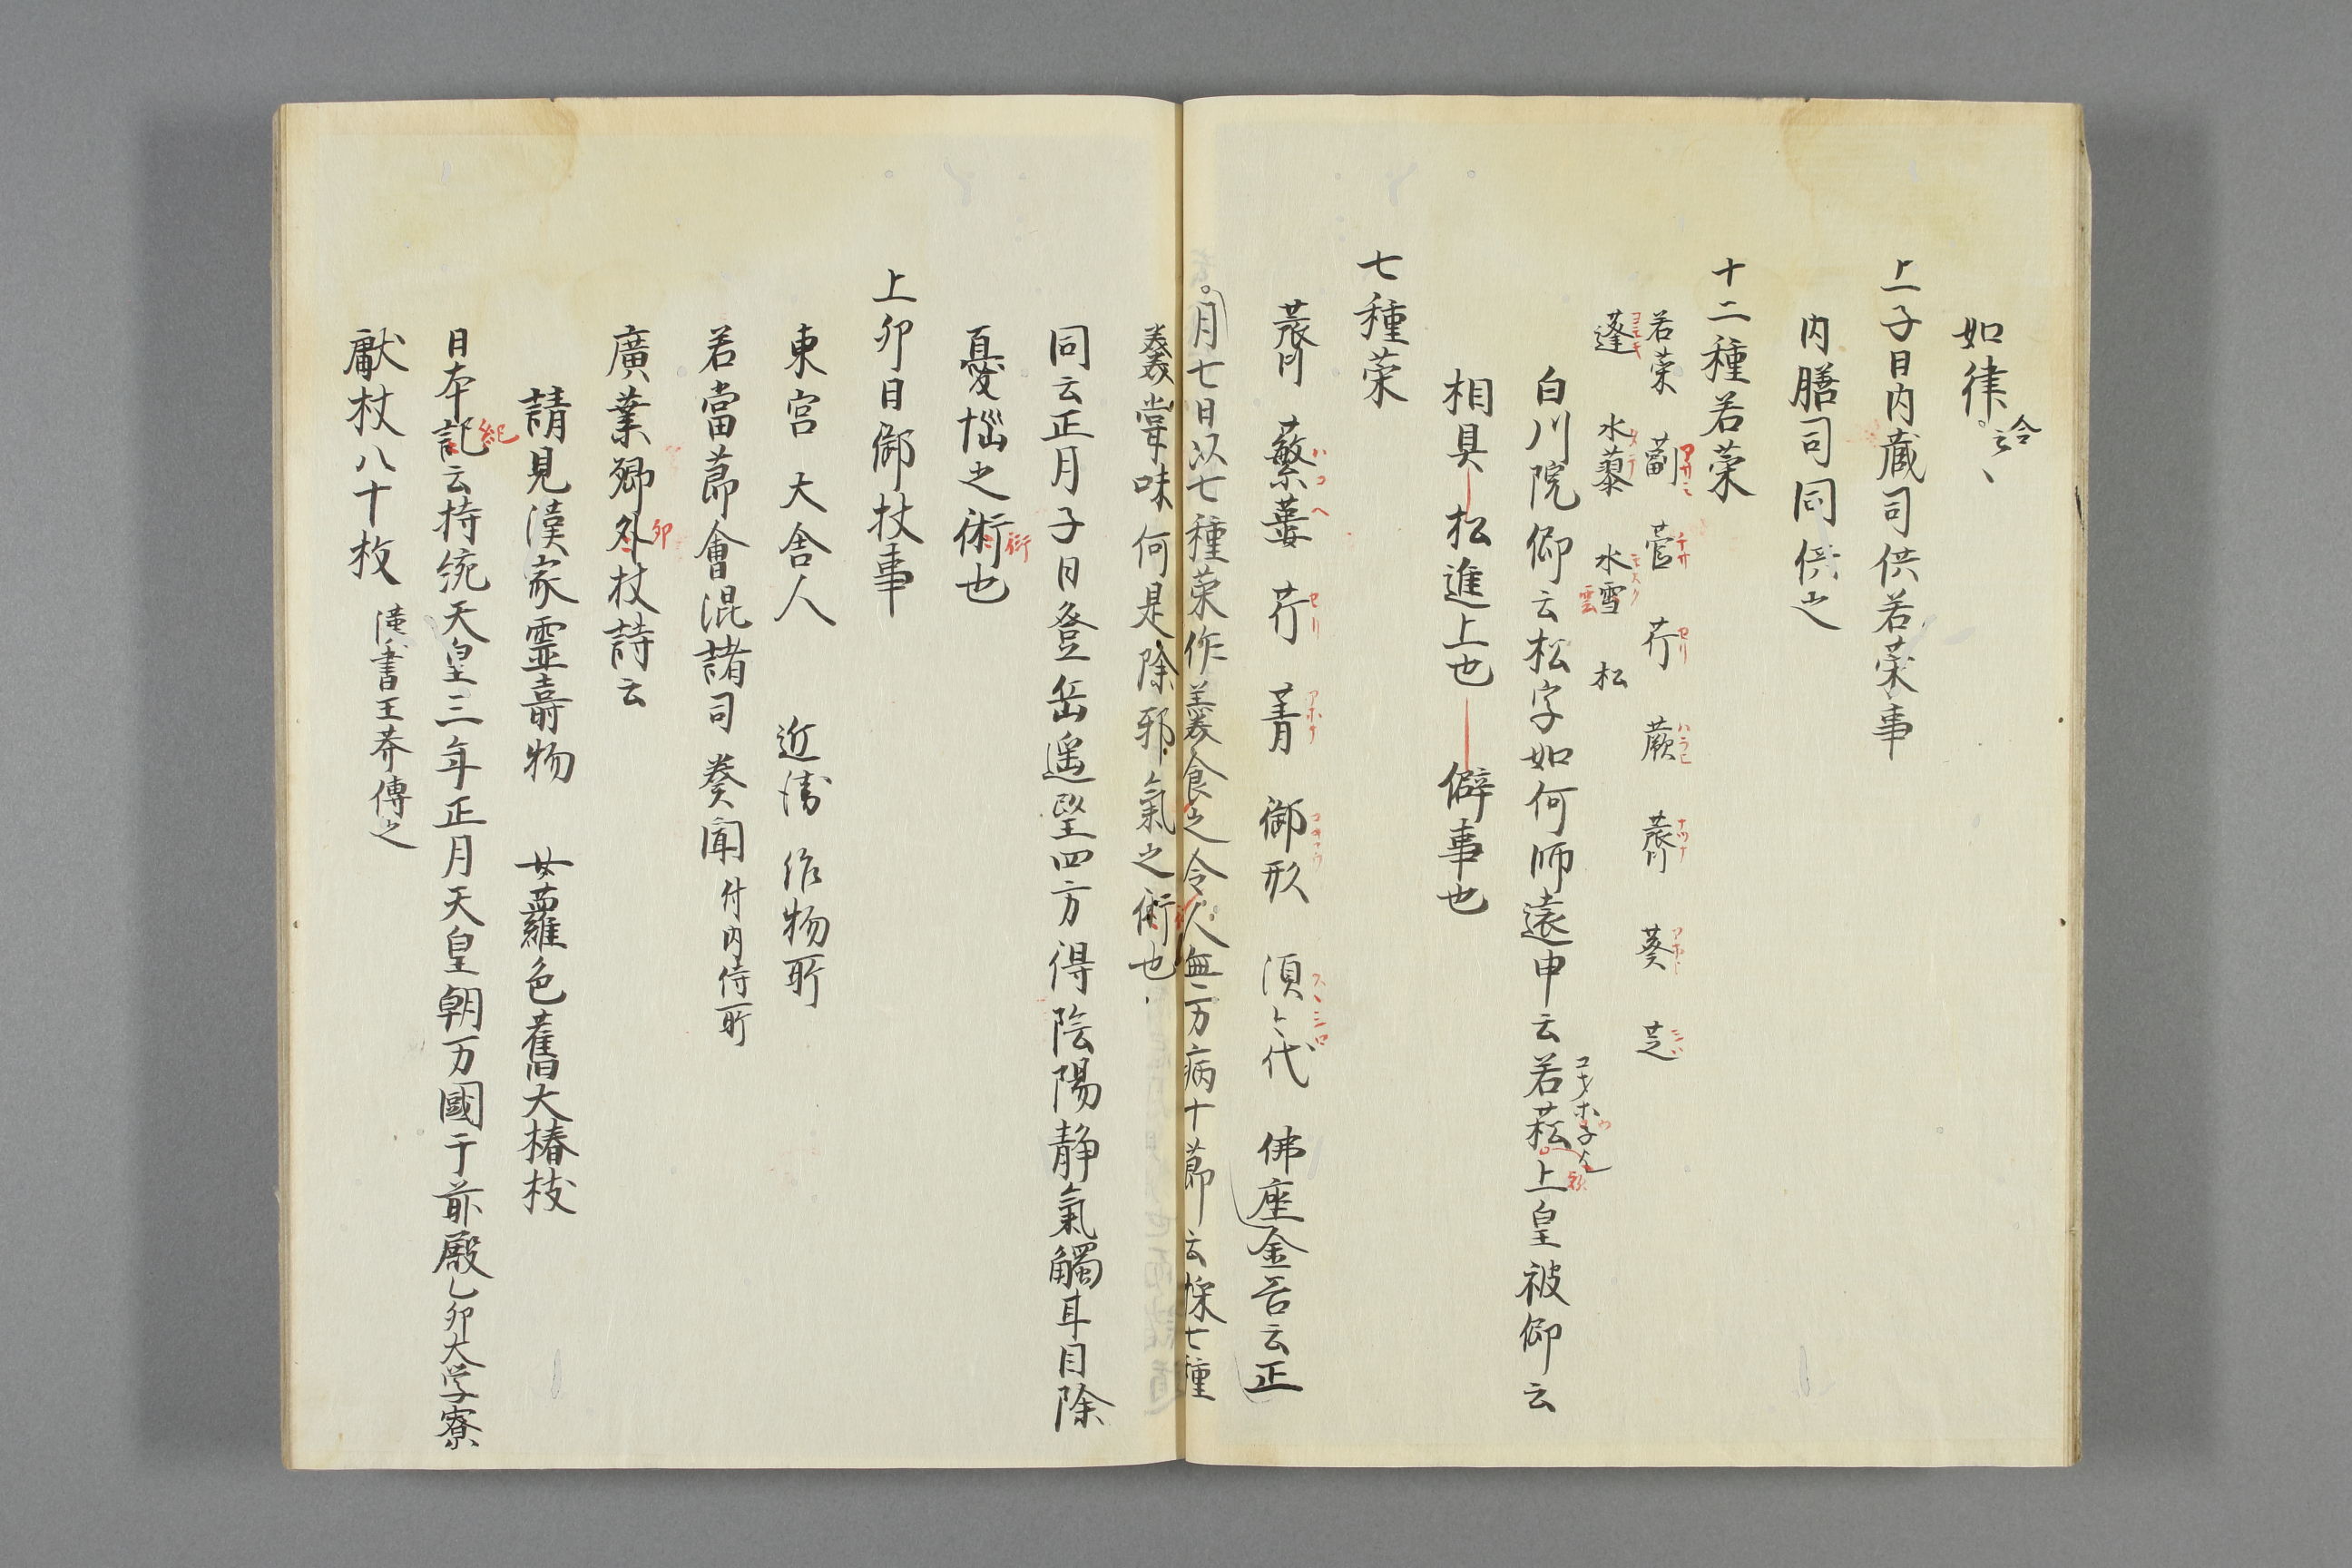 如律令云々
上子日内蔵司供若菜事
内膳司同供之
十二種若菜
若菜 薊 苣 芹 蕨 薺 葵 芝
蓬 水蓼 水雪 松
白川院仰云松字如何師遠申云若菘上皇被仰云
相具松進上也僻事也
七種菜
薺 蘩蔞 芹 菁 御形 須々代 佛座金谷云正
月七日以七種菜作羹食之令人無万病十節云採七種
羹嘗味何是除邪氣之術也
同云正月子日登岳遥望四方得陰陽静氣觸耳目除
憂悩之術也
上卯日御杖事
東宮 大舎人 近衛 作物所
若當節會混諸司奏聞付内侍所
廣業卿外杖詩云
請見漢家霊壽物 女蘿色舊大椿枝
日本記云持統天皇三年正月天皇朝万國于前殿乙卯大学寮
獻杖八十枚 漢書王莽傳之